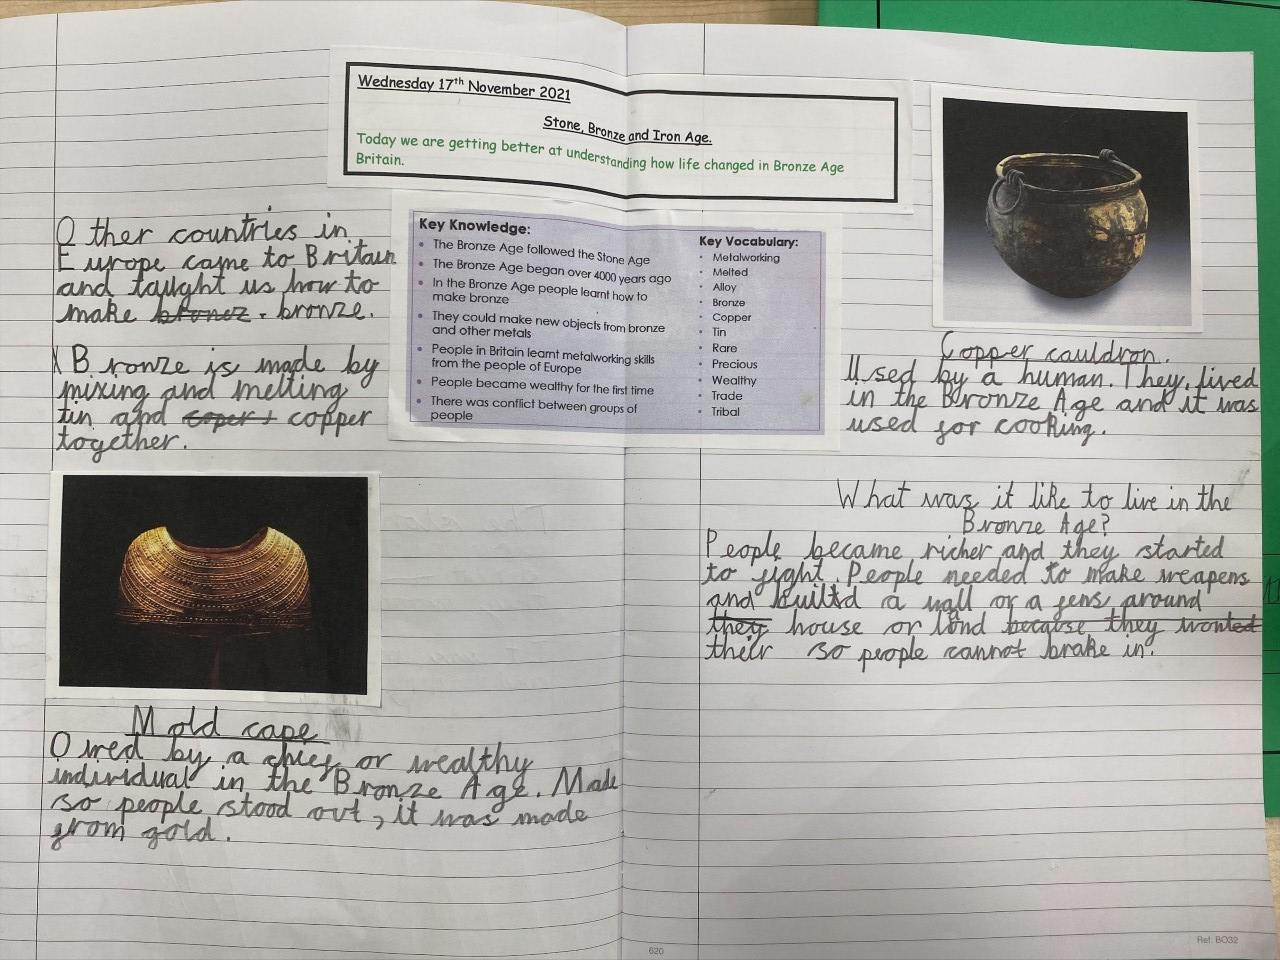 Wednesday 17th November 2021
Stone, Bronze and Iron Age.
Today we are getting better at understanding how life changed in Bronze Age
Britain.
Other countries in
Europe came to Britain
and taught us how to
make bronez. bronze.
Bronze is made by
mixing and melting
tin and coper copper
together.
Key Knowledge:
• The Bronze Age followed the Stone Age
• The Bronze Age began over 4000 years ago
• In the Bronze Age people learnt how to
make bronze
• They could make new objects from bronze
and other metals
• People in Britain learnt metalworking skills
from the people of Europe
• People became wealthy for the first time
• There was conflict between groups of
people
Key Vocabulary:
• Metalworking
• Melted
• Alloy
• Bronze
• Copper
• Tin
• Rare
• Precious
• Wealthy
• Trade
• Tribal
Mold cape
Owed by a chief or wealthy
individual in the Bronze Age. Made
so people stood out, it was made
from gold.
Copper cauldron.
Used by a human. They lived
in the Bronze Age and it was
used for cooking.
What was it like to live in the
Bronze Age?
People became richer and they started
to fight. People needed to make weapens
and build a wall or a fens around
they house or land because they wanted
their so people cannot brake in.
620
Ref: BO32